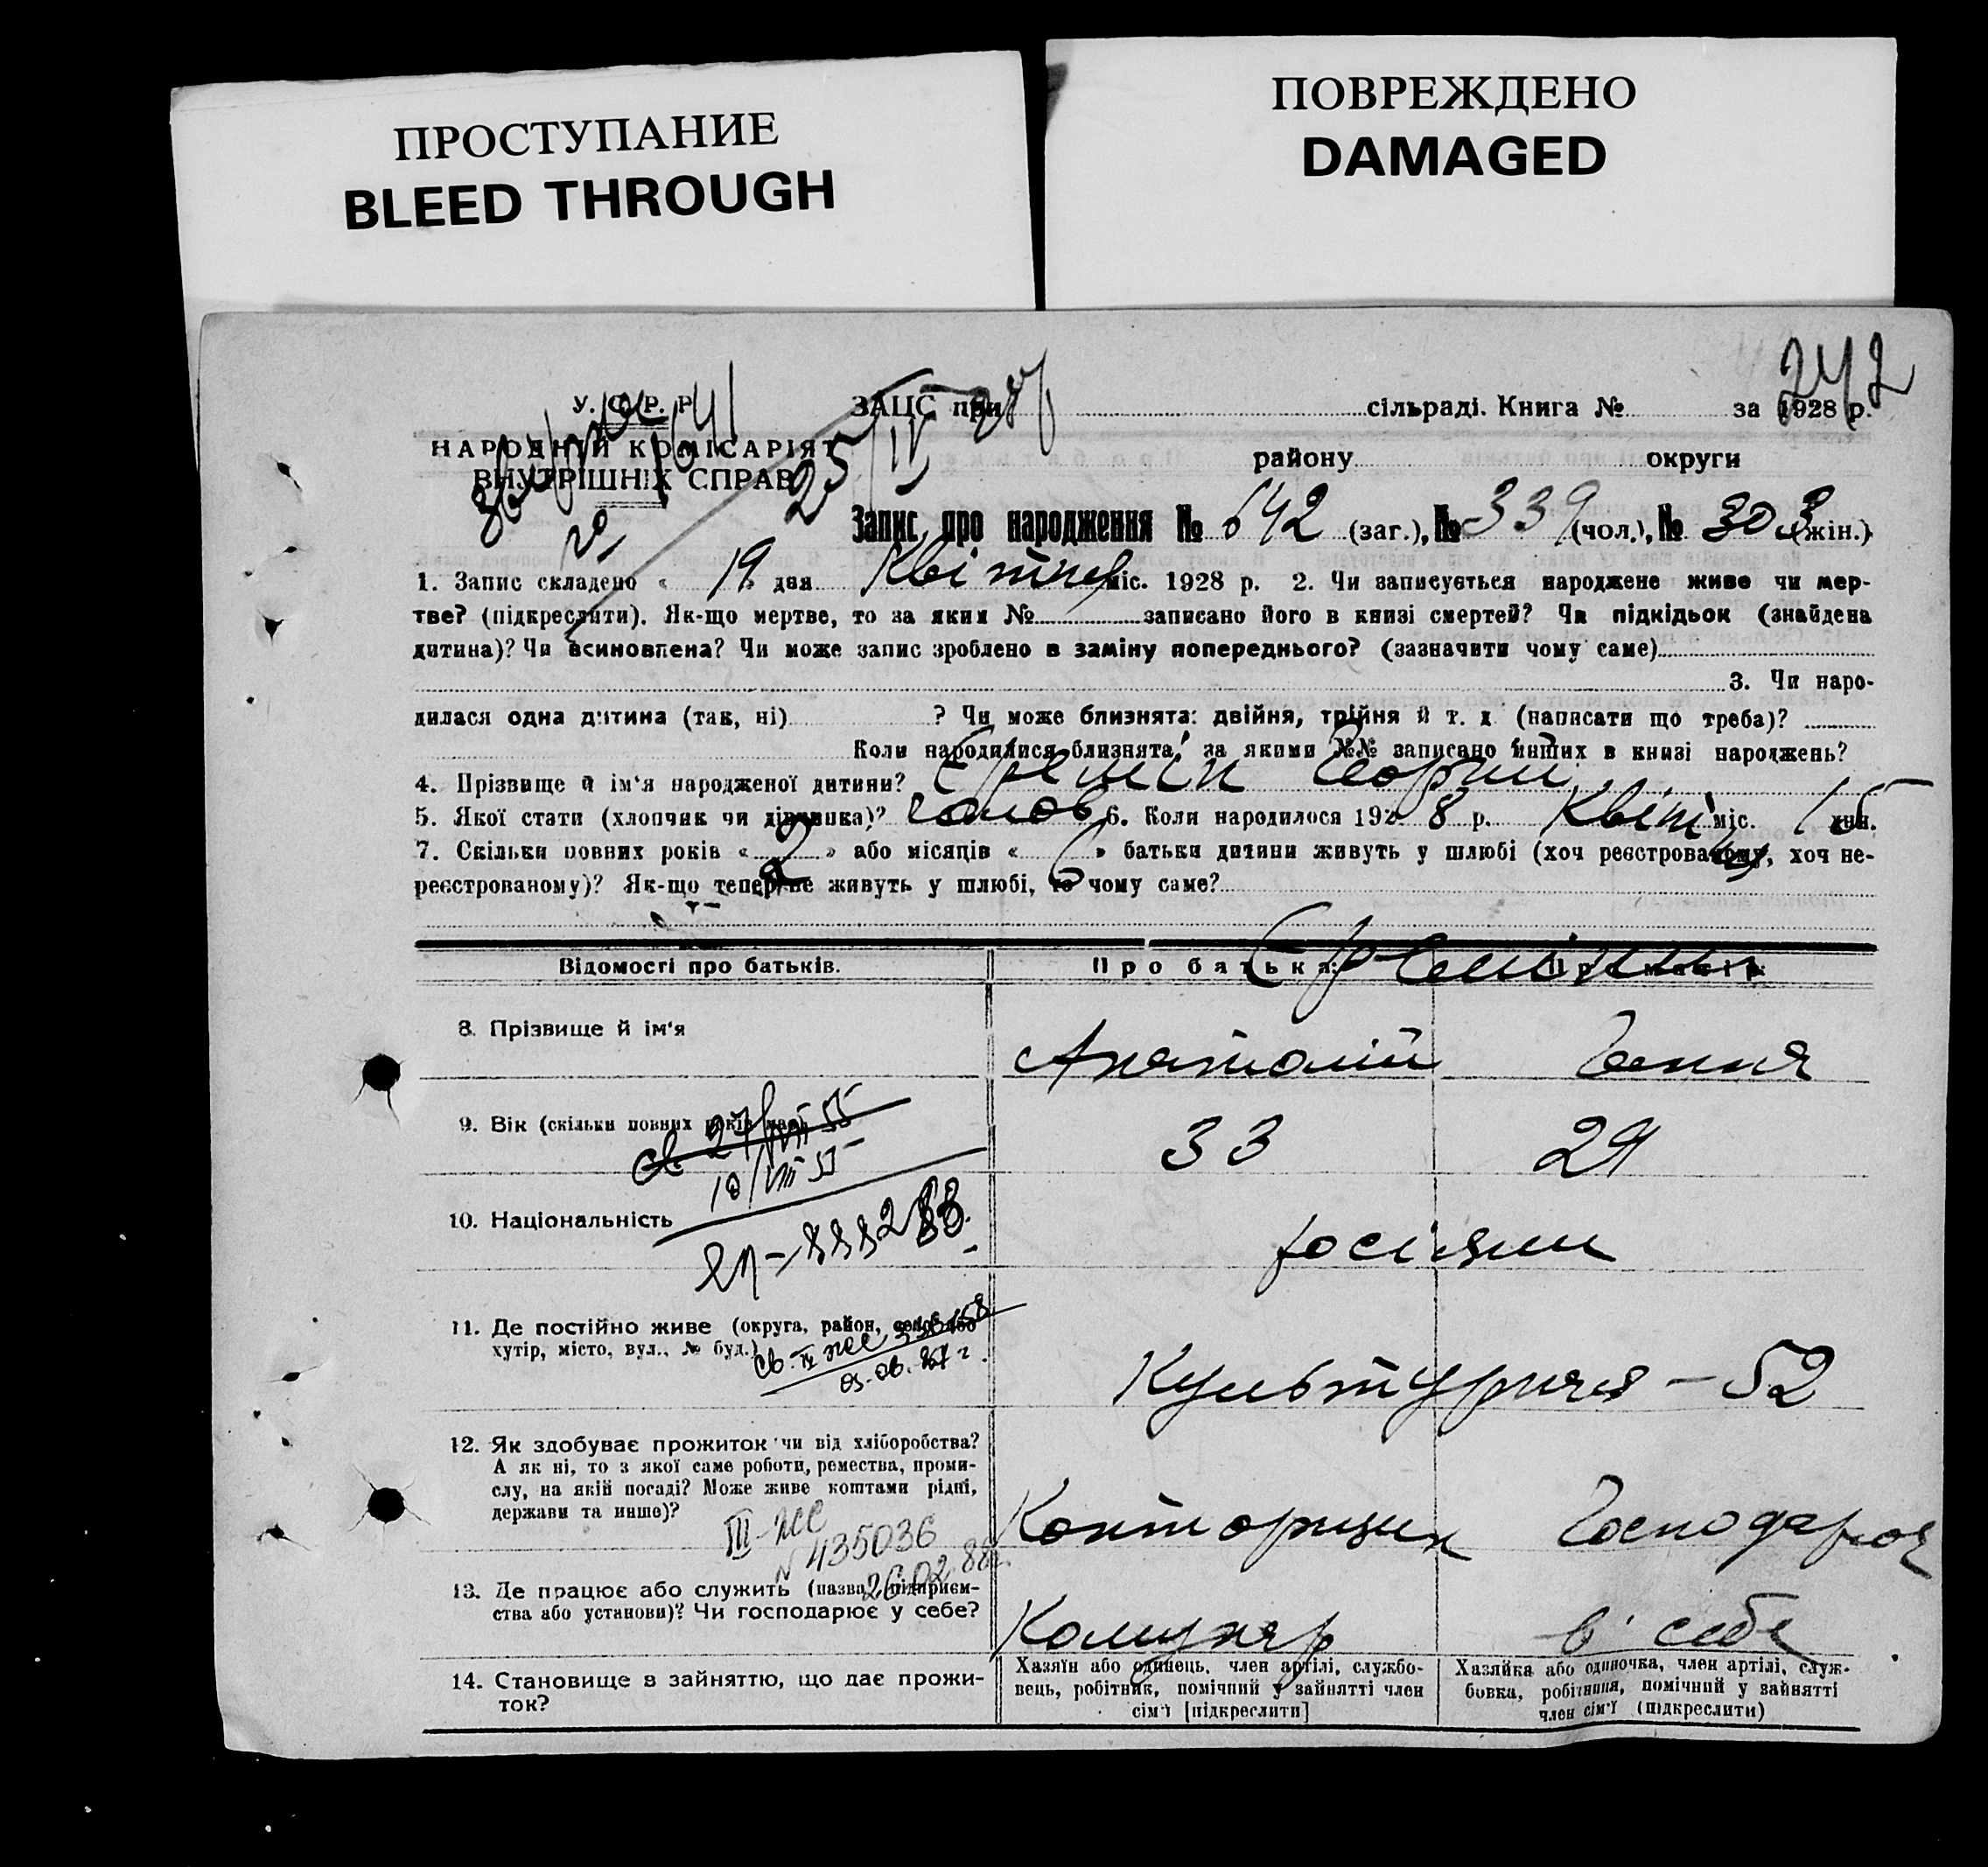 ПРОСТУПАНИЕ
BLEED THROUGH
ПОВРЕЖДЕНО
DAMAGED
242
У. С. Р. Р.
НАРОДНІЙ КОМІСАРІЯТ
ВНУТРІШНІХ СПРАВ
25/IV
ЗАЦС при сільраді. Книга № за 1928 р.
району округи
Запис про народження № 642 (заг.), № 339 (чол.), № 303 (жін.)
1. Запис складено « 19 » дня Квітня міс. 1928 р. 2. Чи записується народжене живе чи мер-
тве? (підкреслити). Як-що мертве, то за яким № записано його в книзі смертей? Чи підкідьок (знайдена
дитина)? Чи всиновлена? Чи може запис зроблено в заміну попереднього? (зазначити чому саме)
3. Чи наро-
дилася одна дитина (так, ні) ? Чи може близнята: двійня, трійня й т. д. (написати що треба)?
Коли народилися близнята, за якими №№ записано инших в книзі народжень?
4. Прізвище й ім'я народженої дитини? Єремін Георгий
5. Якої стати (хлопчик чи дівчинка)? чолов 6. Коли народилося 1928 р. Квітня міс. 15 дня.
7. Скільки повних років « 2 » або місяців « » батьки дитини живуть у шлюбі (хоч реєстрованому, хоч не-
реєстрованому)? Як-що тепер не живуть у шлюбі, то чому саме?
Відомості про батьків. Про батька: Про матір:
Єреміни
8. Прізвище й ім'я Анатолій Ганна
9. Вік (скільки повних років має) 33 29
10/VIII 55
10. Національність росіяни
11. Де постійно живе (округа, район, село або
хутір, місто, вул., № буд.) Культурная – 52
12. Як здобуває прожиток чи від хліборобства?
А як ні, то з якої саме роботи, ремества, проми-
слу, на якій посаді? Може живе коштами рідні,
держави та инше)? Конторщик Господарює
N 435036
26.02.88г.
13. Де працює або служить (назва підприєм-
ства або установи)? Чи господарює у себе? Комунар в себе
14. Становище в зайняттю, що дає прожи-
ток?
Хазяїн або одинець, член артілі, службо-
вець, робітник, помічний у зайнятті член
сім'ї [підкреслити]
Хазяйка або одиночка, член артілі, служ-
бовка, робітниця, помічний у зайнятті
член сім'ї (підкреслити)